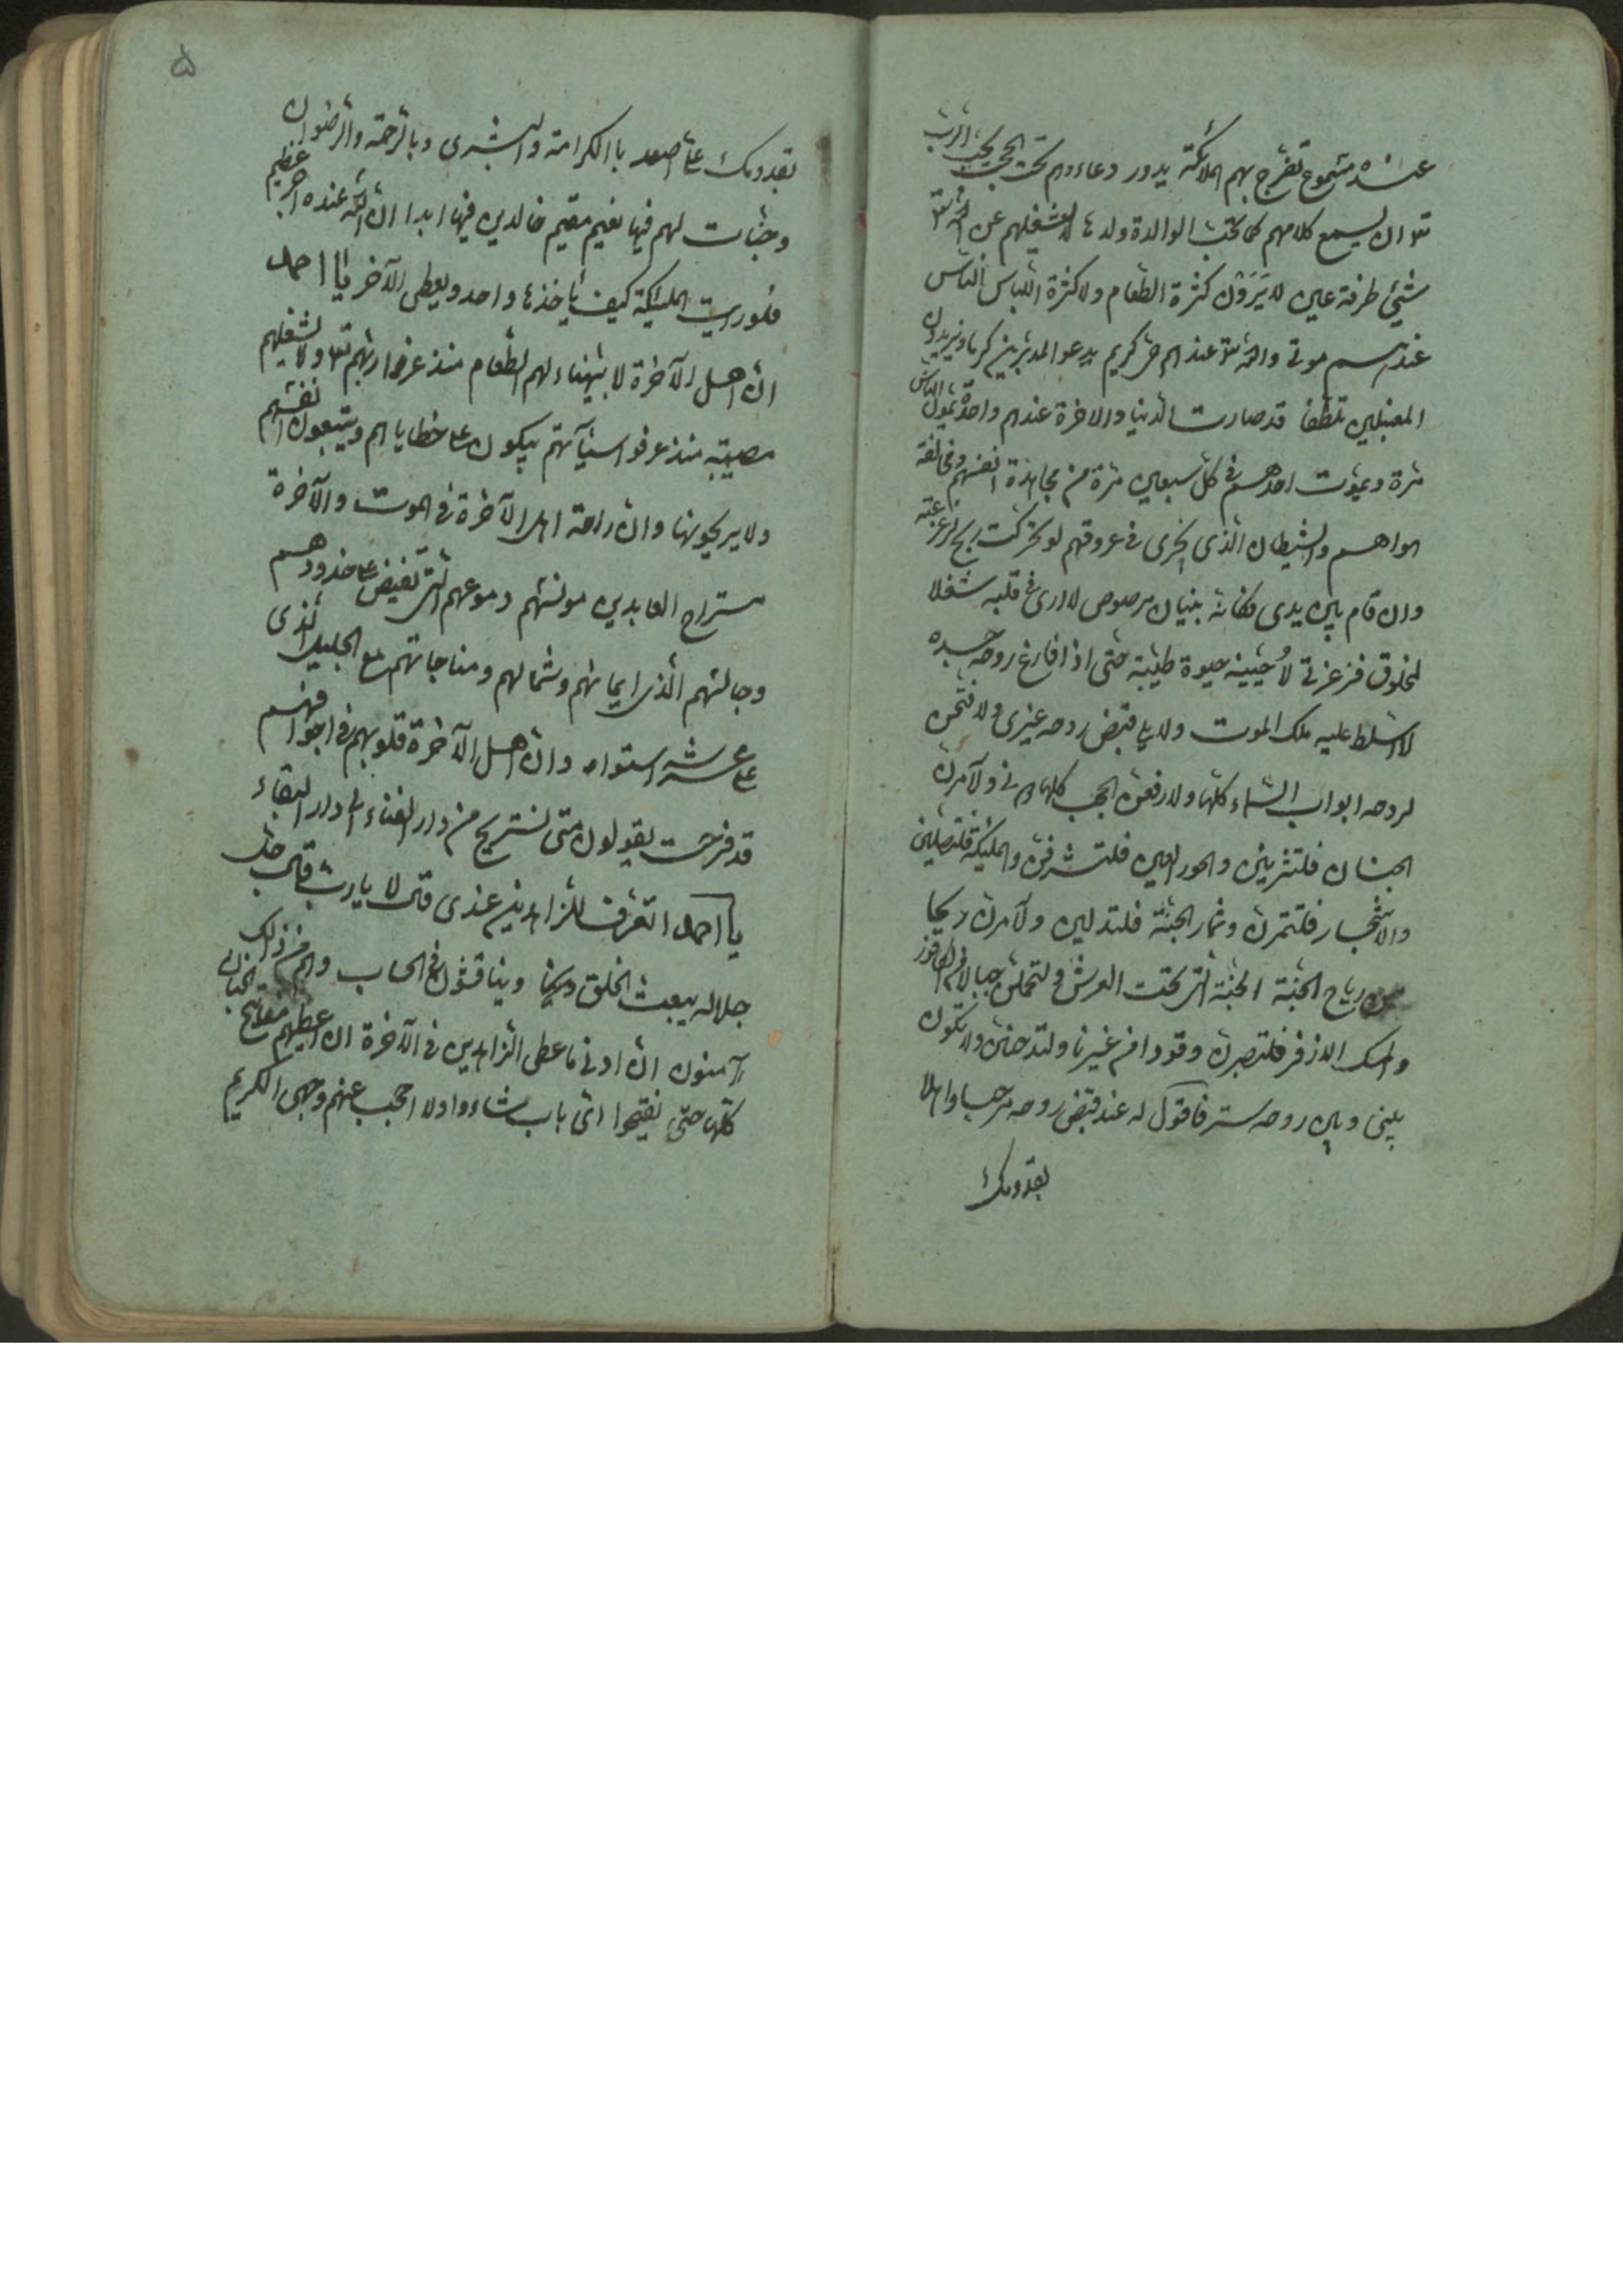 عنده مسموع تفرح بهم الملائكة يدور دعاءهم تحت الحجب يحب الرب
تعالى ان يسمع كلامهم كما تحب الوالدة ولدها لا يشغلهم عن الله تعالى
شئ طرفة عين لا يرون كثرة الطعام ولا كثرة اللباس الناس
عندهم موتى والله تعالى عندهم حى كريم يدعوا المدبرين كرما ويريدون
المقبلين تلطفا قد صارت الدنيا والاخرة عندهم واحدة يموت الناس
مرة ويموت احدهم فى كل سبعين مرة من مجاهدة انفسهم ومخالفة
هواهم والشيطان الذى يجرى فى عروقهم لو تحركت ريح لزعزعته
وان قام بين يدى فكانه بنيان مرصوص لا ارى فى قلبه شغلا
لمخلوق فوعزتى لأحيينه حيوة طيبة حتى اذا فارغ روحه جسده
لا اسلط عليه ملك الموت ولا يلى قبض روحه غيرى ولافتحن
لروحه ابواب السماء كلها ولارفعن الحجب كلها دونى ولآمرن
الجنان فلتتزينن والحور العين فلتشرفن والملئكة فلتصلين
والاشجار فلتثمرن وثمار الجنة فلتدلين ولآمرن ريحا
من رياح الجنة الجنة التى تحت العرش ولتحملن جبالا من الكافور
والمسك الاذفر فلتصيرن وقودا من غير نار ولتدخنن ولا يكون
بينى وبين روحه ستر فاقول له عند قبض روحه مرحبا واهلا
بقدومك
۵
بقدومك على اصعد باالكرامة والبشرى وبالرحمة والرضوان
وجنات لهم فيها نعيم مقيم خالدين فيها ابدا ان الله عنده اجر عظيم
فلو رايت الملئكة كيف يأخذها واحد ويعطى الآخر يا احمد
ان اهل الآخرة لا يهنأء لهم الطعام منذ عرفوا ربهم تعالى ولا يشغلهم
مصيبة منذ عرفوا سيآتهم يبكون على خطاياهم ويتعبون انفسهم
ولا يريحونها وان راحة اهل الآخرة فى الموت والآخرة
مستراح العابدين مونسهم دموعهم التى تفيض على خدودهم
وجالستهم الذى ايمانهم وشمالهم ومناجاتهم مع الجليل الذى
على عرشه استواه وان اهل الآخرة قلوبهم فى اجوافهم
قد قرحت يقولون متى نستريح من دار الفناء الى دار البقاء
يا احمد اتعرف للزاهدين عندى قال لا يارب قال جل
جلاله يبعث الخلق ويناقشون فى الحساب وهم من ذلك
آمنون ان ادنى ما اعطى الزاهدين فى الآخرة ان اعطيهم مفاتيح الجنان
كلها حتى يفتحوا اى باب شاءوا ولا احجب عنهم وجهى الكريم